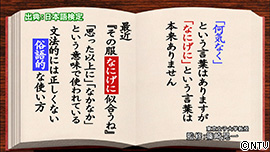 出典:日本語検定
「何気なく」
という言葉はありますが
「なにげに」という言葉は
本来ありません
最近
『その服なにげに似合うね』
「思った以上に」「なかなか」
という意味で使われている
文法的には正しくない
俗語的な使い方
©NTV